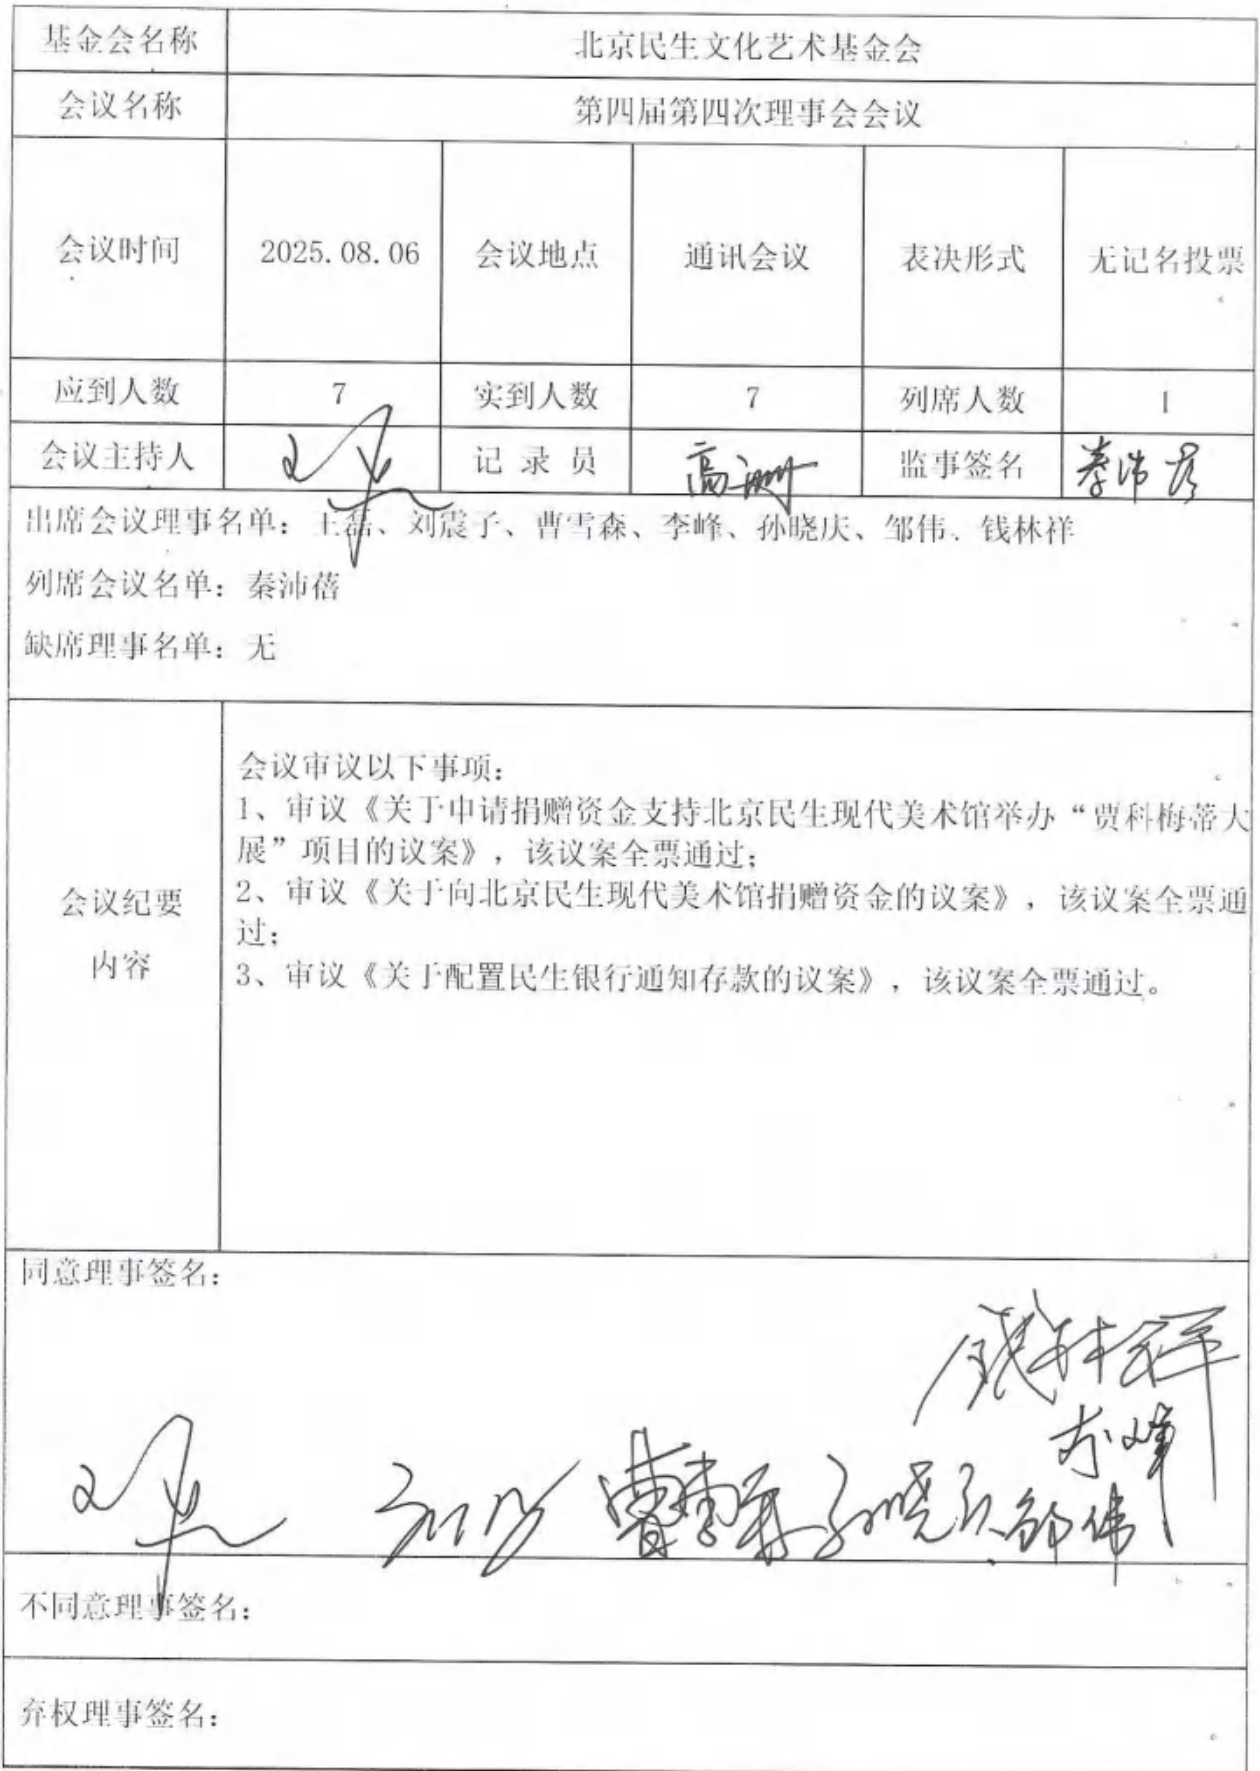 基金会名称 北京民生文化艺术基金会
会议名称 第四届第四次理事会会议
会议时间 2025.08.06 会议地点 通讯会议 表决形式 无记名投票
应到人数 7 实到人数 7 列席人数 1
会议主持人 记 录 员 监事签名 秦沛蓓
出席会议理事名单：王磊、刘震子、曹雪森、李峰、孙晓庆、邹伟、钱林祥
列席会议名单：秦沛蓓
缺席理事名单：无
会议纪要
内容
会议审议以下事项：
1、审议《关于申请捐赠资金支持北京民生现代美术馆举办“贾科梅蒂大
展”项目的议案》，该议案全票通过；
2、审议《关于向北京民生现代美术馆捐赠资金的议案》，该议案全票通
过；
3、审议《关于配置民生银行通知存款的议案》，该议案全票通过。
同意理事签名：
钱林祥
李峰
曹雪森 孙晓庆 邹伟
不同意理事签名：
弃权理事签名：